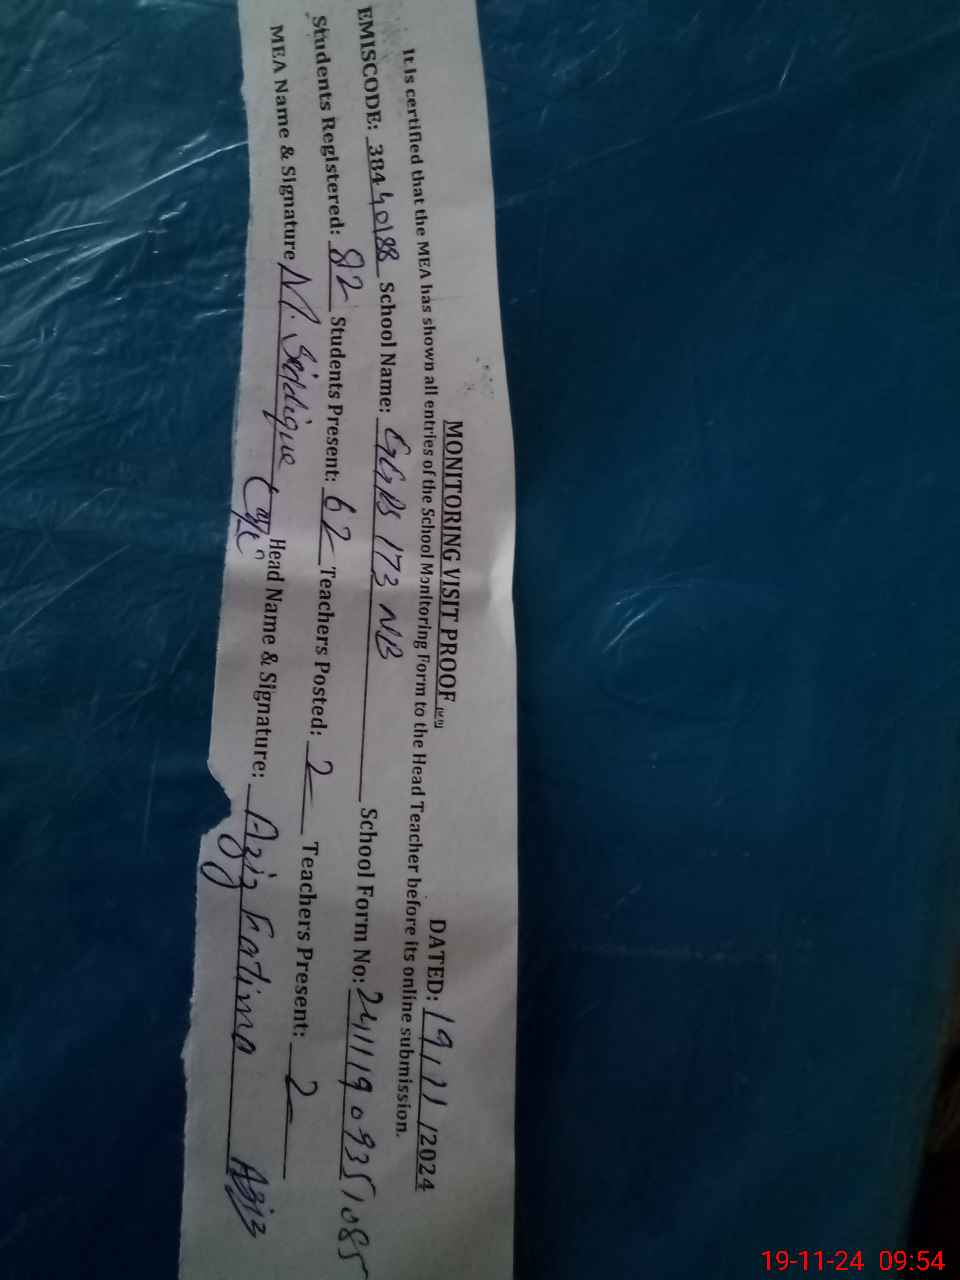 MONITORING VISIT PROOF
DATED: 19/11/2024
It is certified that the MEA has shown all entries of the School Monitoring Form to the Head Teacher before its online submission.
EMISCODE: 38440188 School Name: GGPS 173 NB School Form No: 24111909351085
Students Registered: 82 Students Present: 62 Teachers Posted: 2 Teachers Present: 2
MEA Name & Signature M. Siddique Head Name & Signature: Aziz Fatima Aziz
19-11-24 09:54